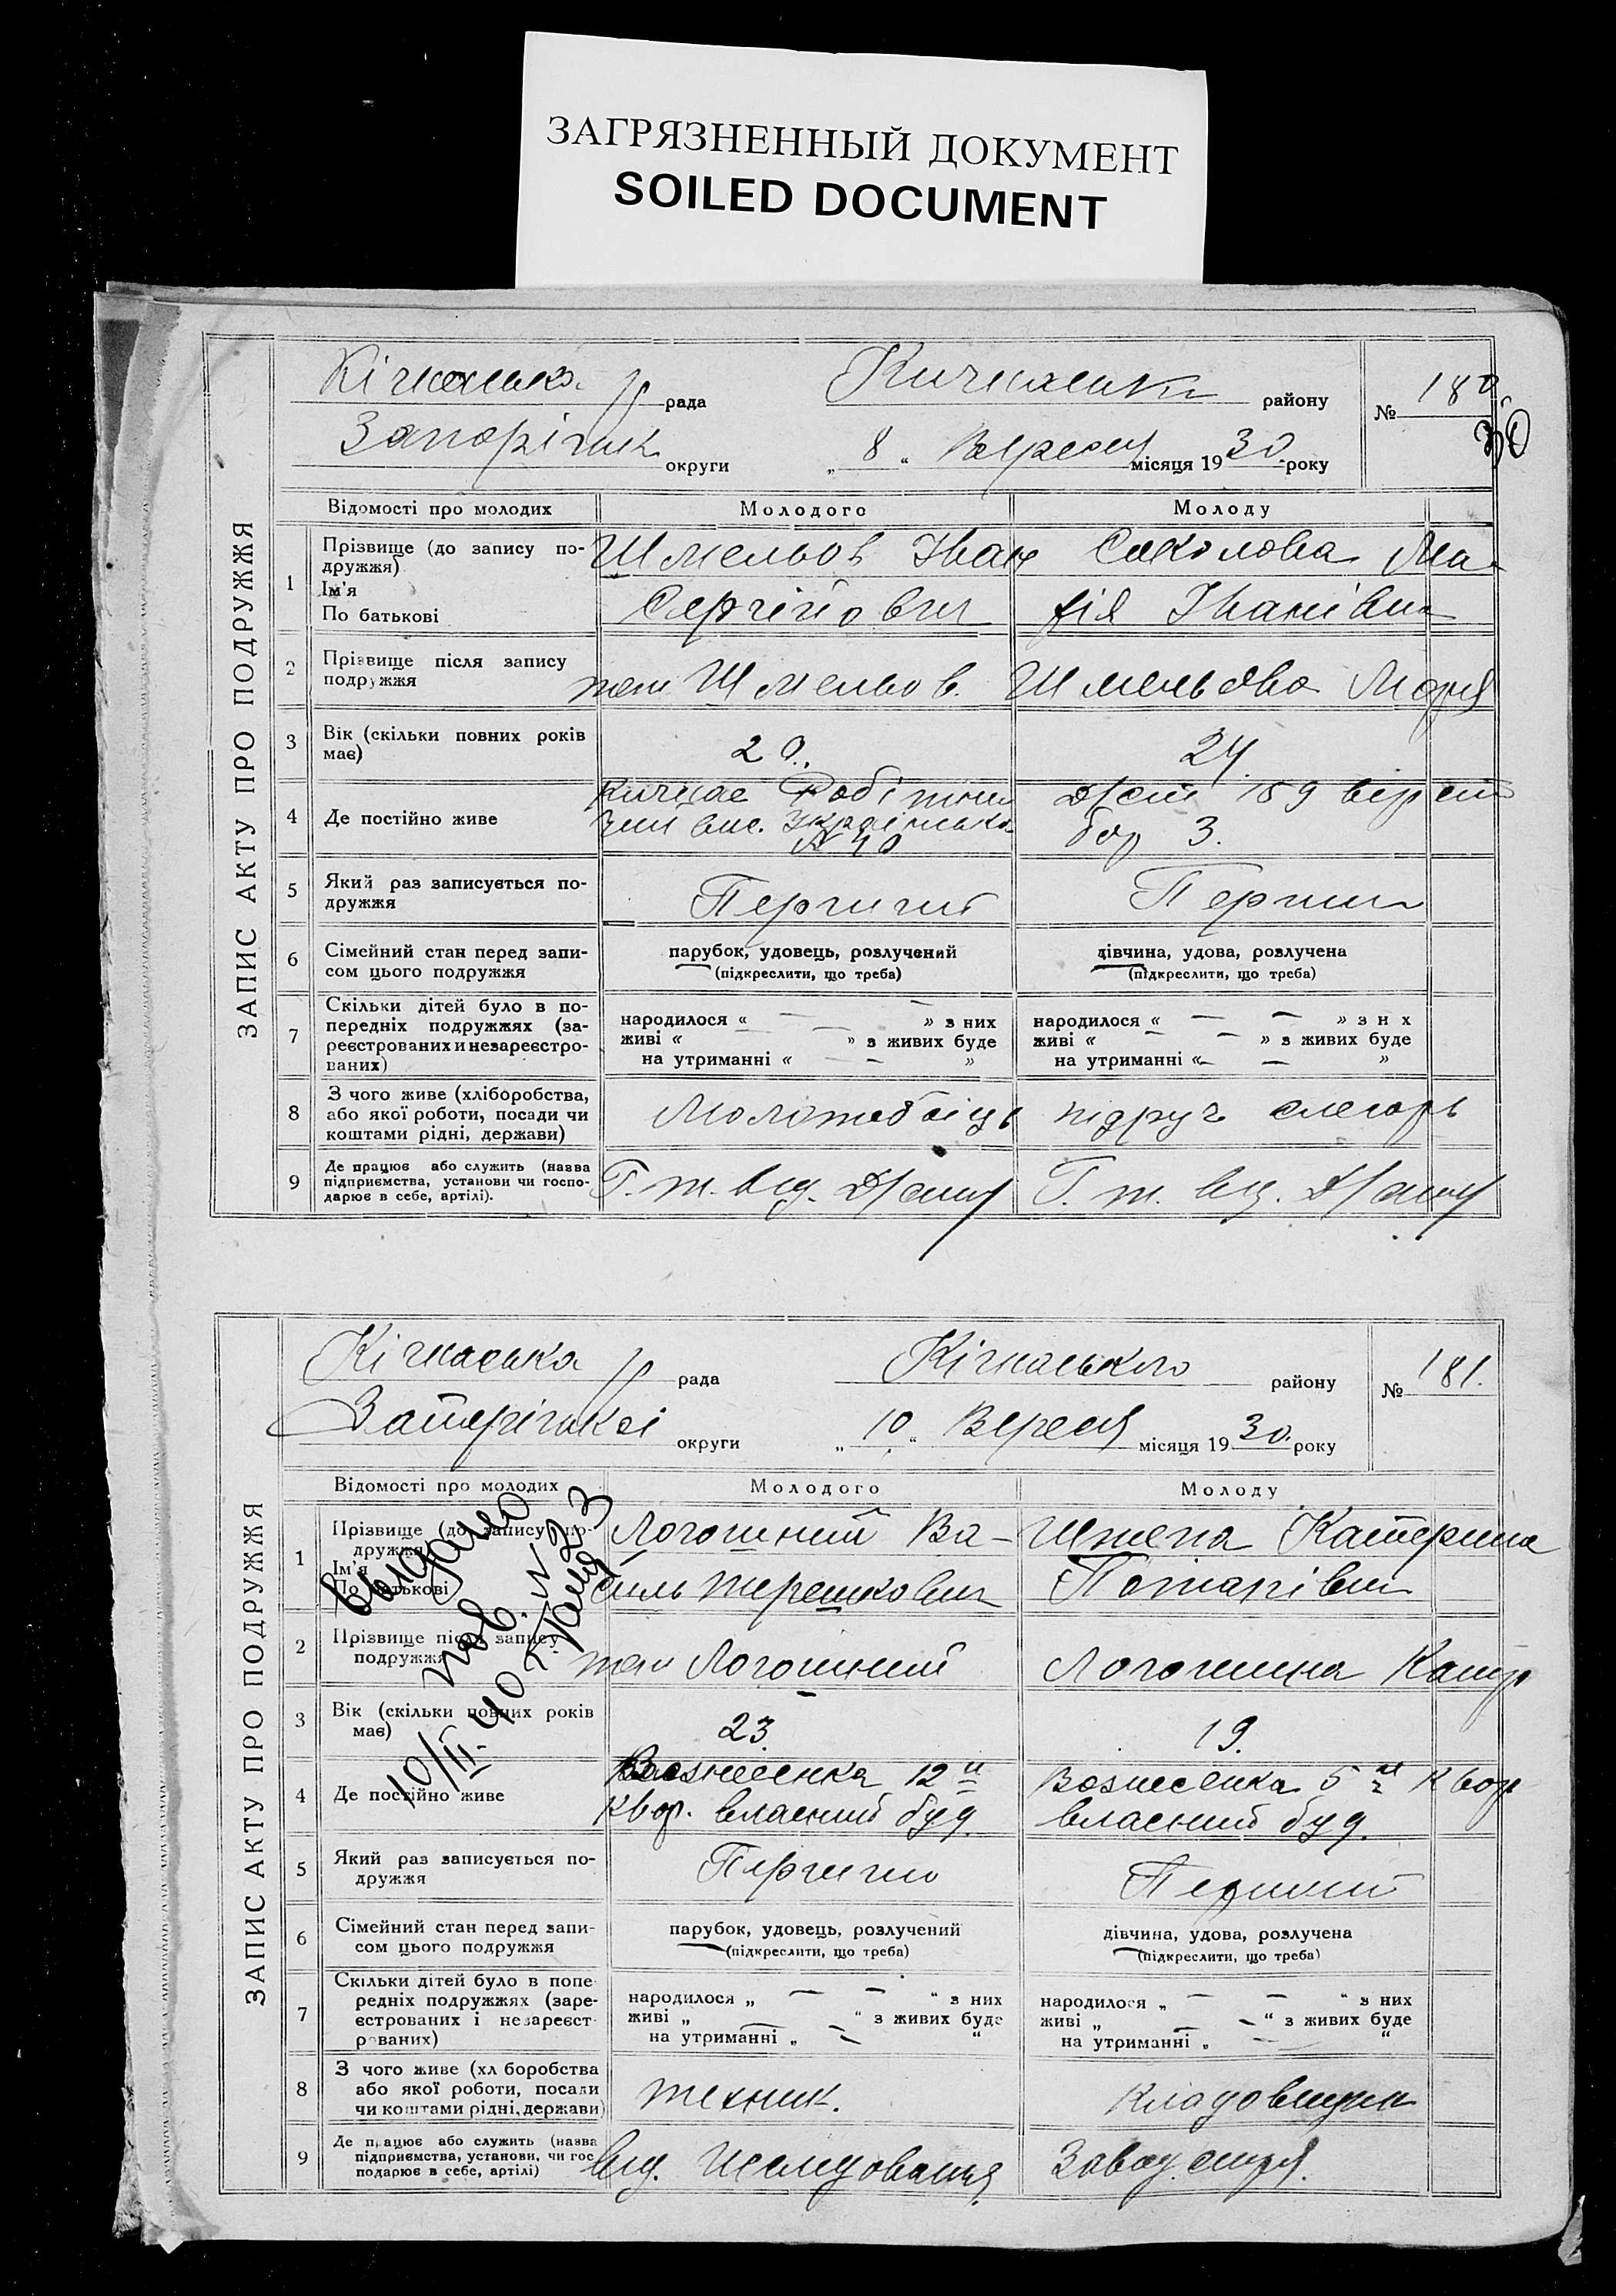 ЗАГРЯЗНЕННЫЙ ДОКУМЕНТ
SOILED DOCUMENT
ЗАПИС АКТУ ПРО ПОДРУЖЖЯ
рада району № 180
30
округи „ 8 “ місяця 1930 року
Відомості про молодих Молодого Молоду
1 Прізвище (до запису по-
дружжя)
Ім'я
По батькові
Шмельов Іван
Сергійович
Соколова Ма-
рія Іванівна
2 Прізвище після запису
подружжя
Шмельов. Шмельова Марія
3 Вік (скільки повних років
має)
20. 24.
4 Де постійно живе
Кичкас
№ 40
189
3.
5 Який раз записується по-
дружжя
Перший Перший
6 Сімейний стан перед запи-
сом цього подружжя
парубок, удовець, розлучений
(підкреслити, що треба)
дівчина, удова, розлучена
(підкреслити, що треба)
7 Скільки дітей було в по-
передніх подружжях (за-
реєстрованих и незареєстро-
ваних)
народилося « — » з них
живі « — » з живих буде
на утриманні « — »
народилося « — — » з н х
живі « — » з живих буде
на утриманні « — »
8 З чого живе (хліборобства,
або якої роботи, посади чи
коштами рідні, держави)
Молотобоїць підруч слюсаря
9 Де працює або служить (назва
підприємства, установи чи госпо-
дарює в себе, артілі).
ЗАПИС АКТУ ПРО ПОДРУЖЖЯ
Кічкаська рада Кічкаського району № 181.
округи „ 10 “ місяця 1930. року
Відомості про молодих Молодого Молоду
1 Прізвище (до запису по-
дружжя
Ім'я
По батькові
Логошний Ва-
силь Терешкович
Штепа Катерина
2 Прізвище після запису
подружжя
Логошний Логошина Катер
3 Вік (скільки повних років
має)
23. 19.
Видано
пов. № 23
10/III. 40 р.
4 Де постійно живе
Вознесенка 12й
квар. власний буд.
Вознесенка 5й квар
власний буд.
5 Який раз записується по-
дружжя
Перший Перший
6 Сімейний стан перед запи-
сом цього подружжя
парубок, удовець, розлучений
(підкреслити, що треба)
дівчина, удова, розлучена
(підкреслити, що треба)
7 Скільки дітей було в попе-
редніх подружжях (заре-
єстрованих і незареєст-
рованих)
народилося „ — — “ з них
живі „ — “ з живих буде
на утриманні „ — “
народилося „ — — “ з них
живі „ — “ з живих буде
на утриманні „ — “
8 З чого живе (хл боробства
або якої роботи, посади
чи коштами рідні, держави)
технік. кладовщик
9 Де працює або служить (назва
підприємства, установи, чи гос
подарює в себе, артілі)